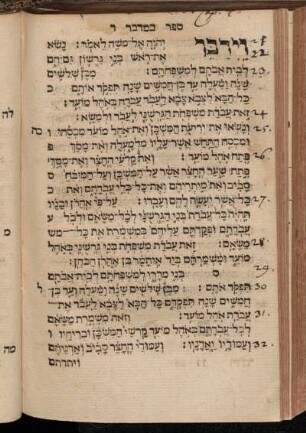 ספר במדבר ד
וידבר יהוה אל־משה לאמר: נשא 21.
את־ראש בני גרשון גם־הם 22.
לבית אבתם למשפחתם: מבן שלשים 23.
שנה ומעלה עד בן־חמשים שנה תפקד אותם כ
כל־הבא לצבא צבא לעבד עבדה באהל מועד:
זאת עבדת משפחת הגרשני לעבד ולמשא: 24.
ונשאו את־יריעת המשכן ואת־אהל מועד מכסהו 25.
אשר־עליו מלמעלה ואת־מסך
פתח אהל מועד: ואת קלעי החצר ואת־מסך 26.
החצר אשר על־המשכן ועל־המזבח ס
סביב ואת מיתריהם ואת־כל־כלי עבדתם ואת
כל־אשר יעשה להם ועבדו: על־פי אהרן ובניו 27.
תהיה כל־עבדת בני הגרשני לכל־משאם ולכל ע
עבדתם ופקדתם עליהם במשמרת את כל־
משאם: זאת עבדת משפחת בני הגרשני באהל 28.
מועד ומשמרתם ביד איתמר בן־אהרן הכהן:
ס בני מררי למשפחתם לבית־אבתם 29.
תפקד אתם: מבן שלשים שנה ומעלה ועד בן־ 30.
חמשים שנה תפקדם כל־הבא לצבא לעבד את־
עבדת אהל מועד: וזאת משמרת משאם 31.
לכל־עבדתם באהל מועד קרשי המשכן ובריחיו
ועמודיו ואדניו: ועמודי החצר סביב ואדניהם 32.
ויתדתם